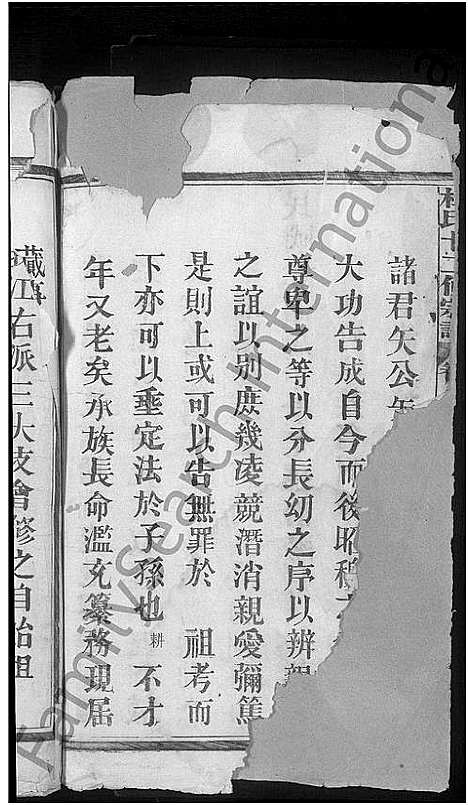 諸君矢公
大功告成自今而後昭穆
尊卑之等以分長幼之序以辨親
之誼以別庶幾凌競潛消親愛彌篤
是則上或可以告無罪於 祖考而
下亦可以垂定法於子孫也 耕 不才
年又老矣承族長命濫充纂務現屆
右派三大支會修之自始祖
FamilySearch International